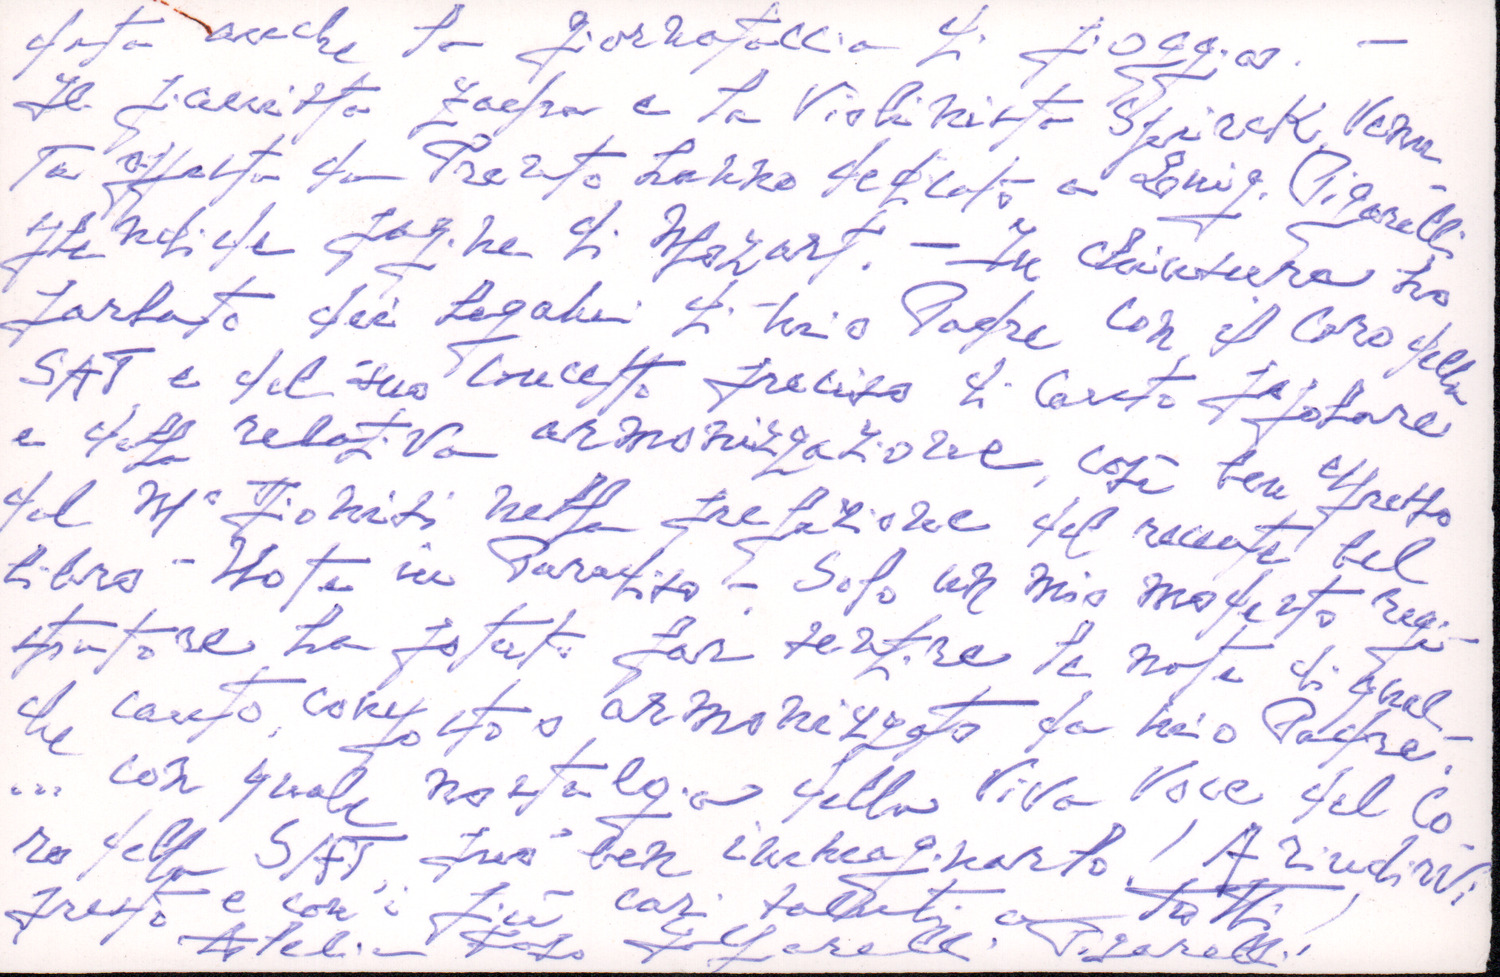 data anche la giornataccia di pioggia. —
Il pianista Zadra e la Violinista Spirck, Venu-
ta apposta da Trento hanno dedicato a Luig. Pigarelli
splendide pagine di Mozart. — In chiusura ho
parlato dei legami di mio Padre con il Coro della
SAT e del suo concetto preciso di Canto popolare
e della relativa armonizzazione, così ben espresso
dal Mº Dionisi nella prefazione del recente bel
libro - Note in Paradiso -. Solo un mio modesto regi-
stratore ha potuto far sentire le note di qual-
che canto, composto o armonizzato da mio Padre.
... con quale nostalgia della Viva Voce del Co-
ro della SAT può ben immaginarlo! A riudirVi
presto e con i più cari saluti a Tutti!
Pigarelli